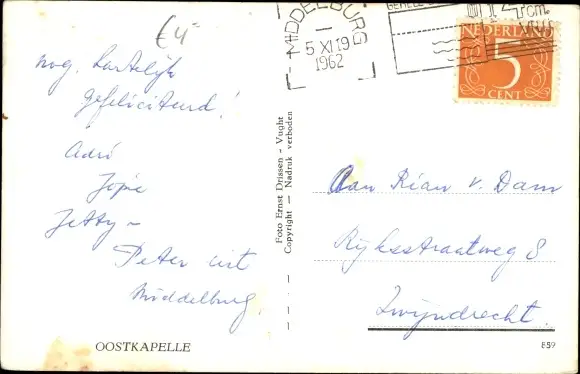 €4-
nog hartelijk
gefeliciteerd!
Adri
Jopie
Jetty -
Peter uit
Middelburg.
OOSTKAPELLE
MIDDELBURG
5 XI 19
1962
NEDERLAND
5
CENT
Foto Ernst Drissen - Vught
Copyright — Nadruk verboden
Aan Rian v. Dam
Rijksstraatweg 8
Zwijndrecht.
859